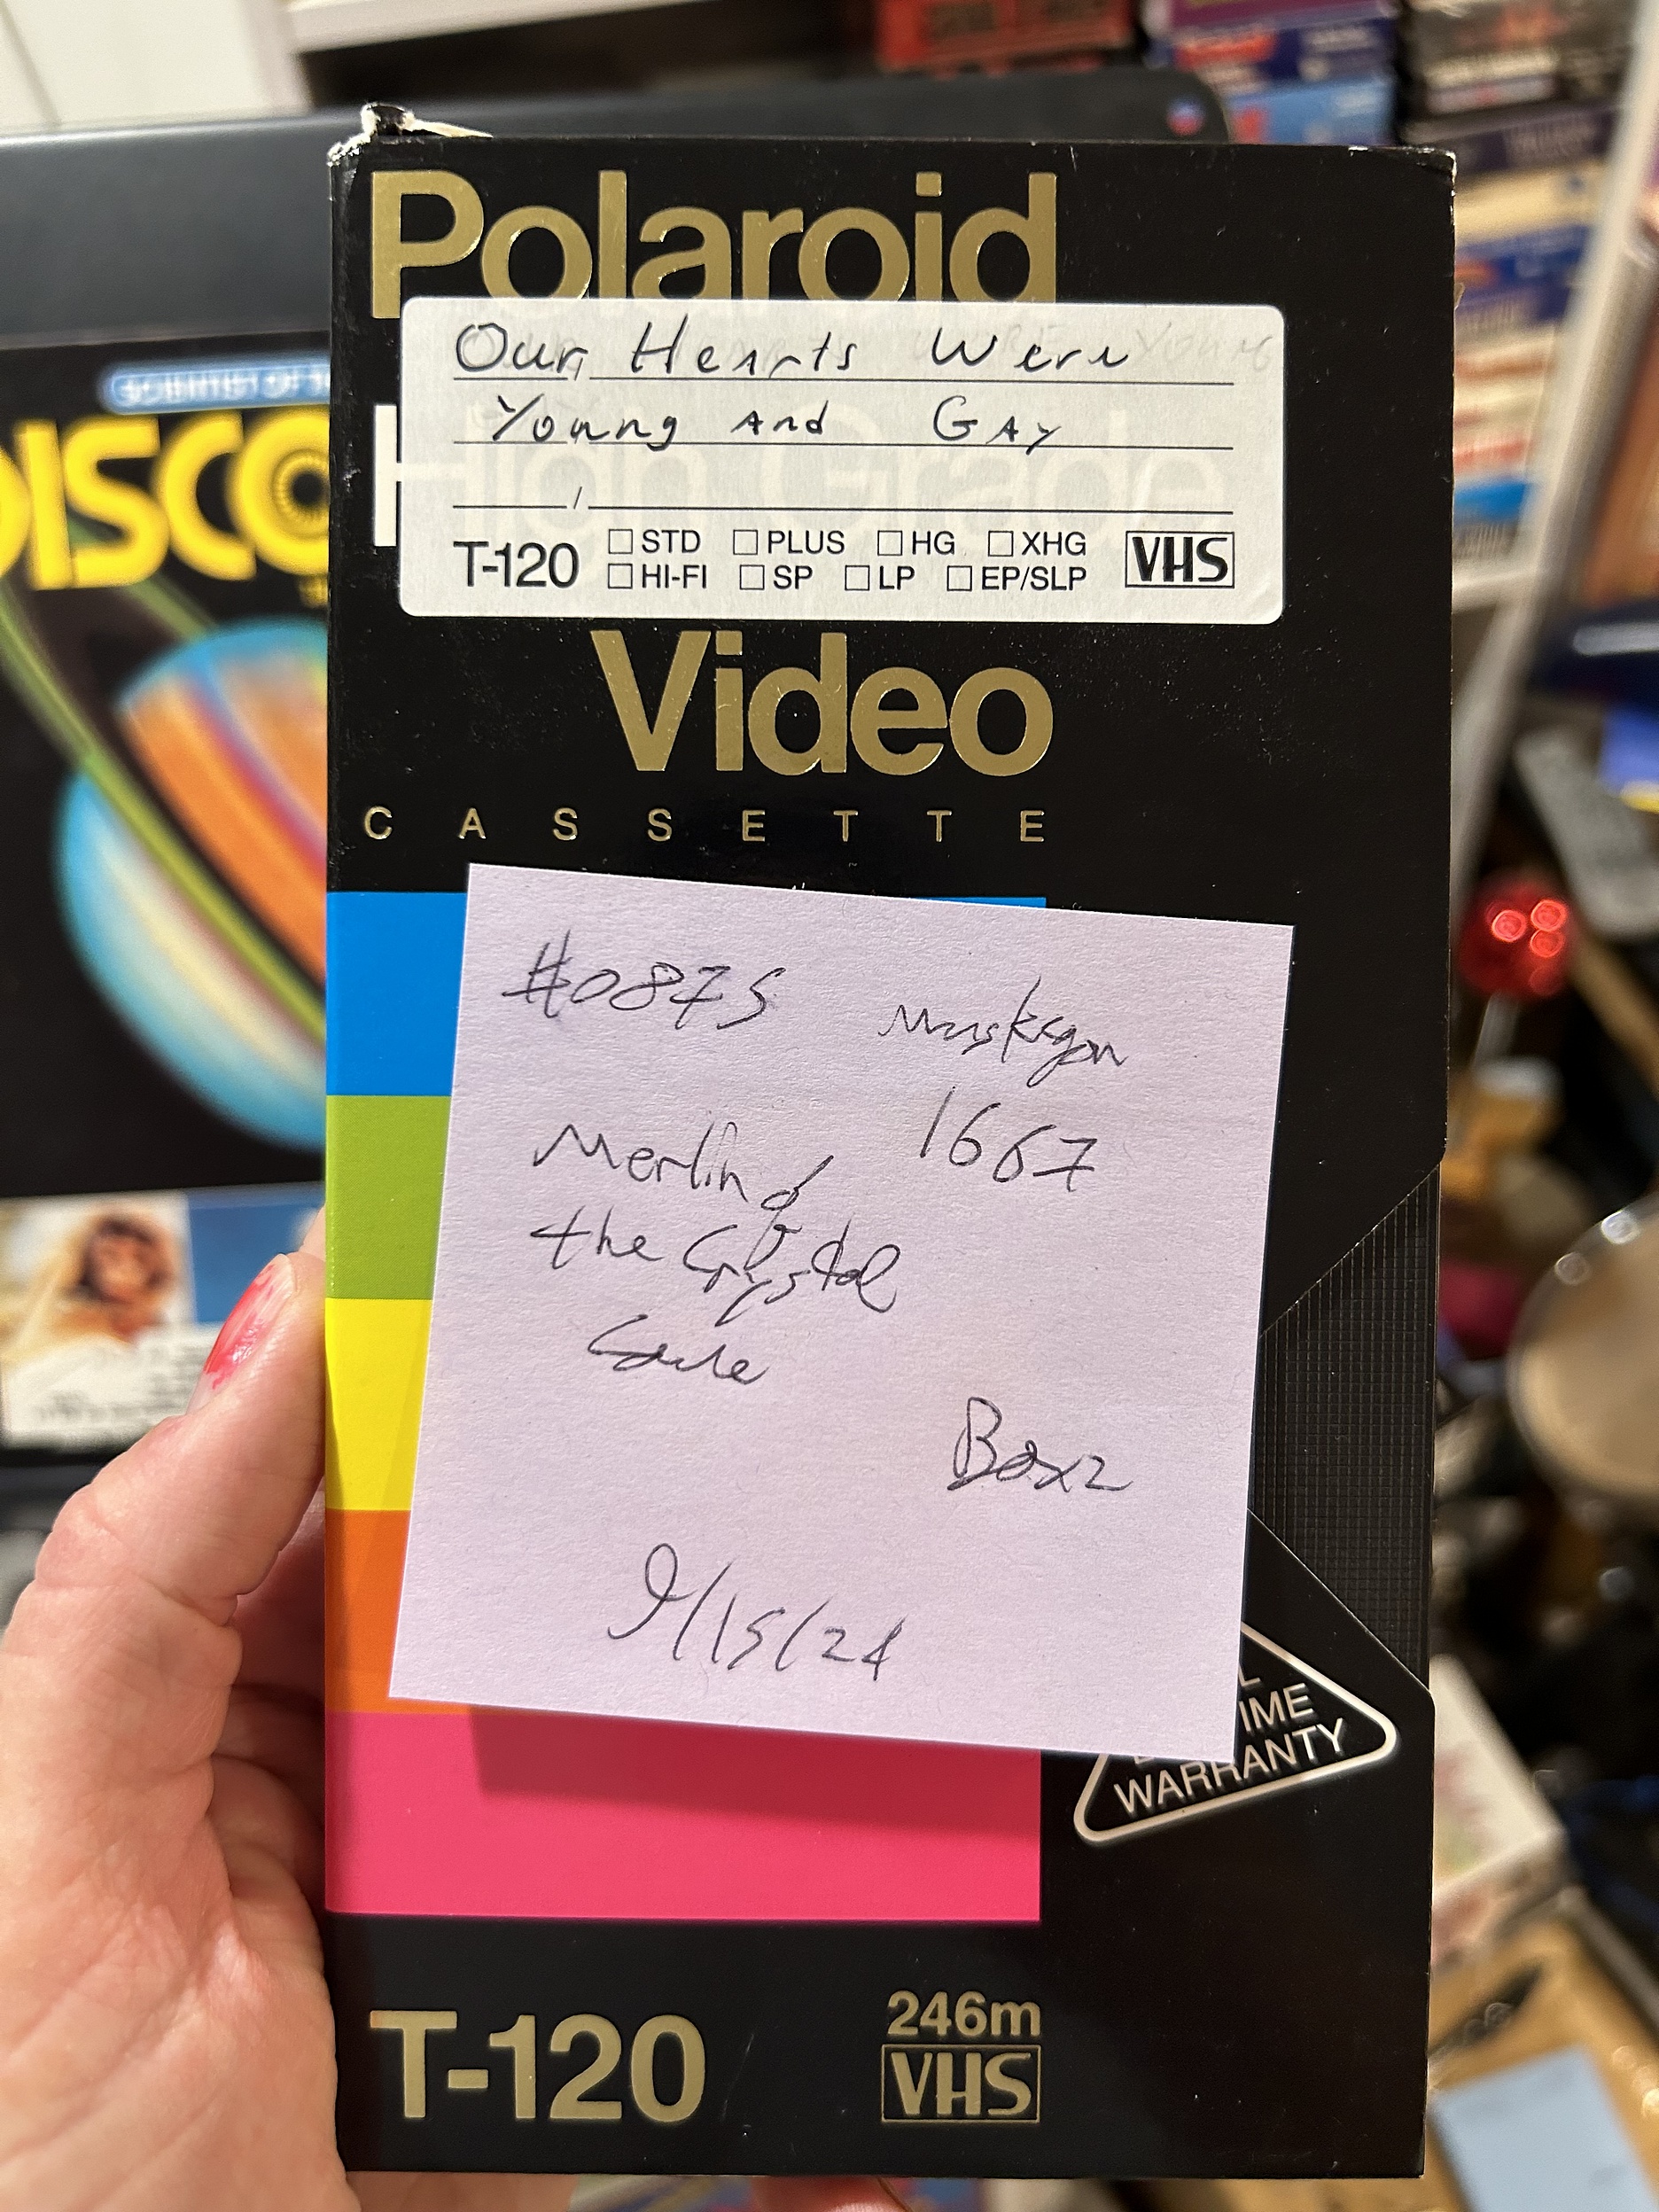 Polaroid
Our Hearts Were
Young and Gay
High Grade
T-120 STD PLUS HG XHG VHS
HI-FI SP LP EP/SLP
Video
CASSETTE
#0875 Muskegon
1667
Merlin &
the Crystal
Box2
9/15/24
IME
WARRANTY
T-120
246m
VHS
DISCO